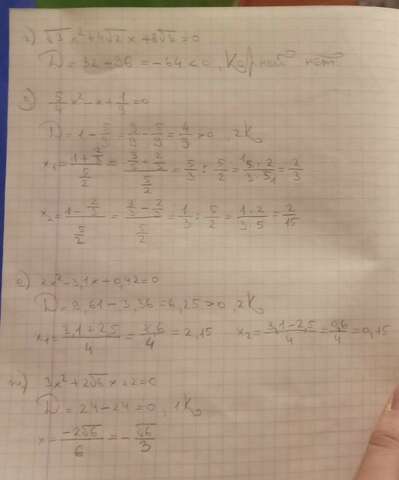 г) √3 x² + 4√2 x + 8√3 = 0
D = 32 - 96 = -64 < 0, Корней нет
5/4 x² - x + 1/9 = 0
D = 1 - 5/9 = 9/9 - 5/9 = 4/9 > 0, 2К
x₁ = (1 + 2/3)/(5/2) = (3/3 + 2/3)/(5/2) = 5/3 : 5/2 = (5·2)/(3·5) = 2/3
x₂ = (1 - 2/3)/(5/2) = (3/3 - 2/3)/(5/2) = 1/3 : 5/2 = (1·2)/(3·5) = 2/15
е) 2x² - 3,1x + 0,42 = 0
D = 9,61 - 3,36 = 6,25 > 0, 2К
x₁ = (3,1 + 2,5)/4 = /4 = 2,15 x₂ = (3,1 - 2,5)/4 = 0,6/4 = 0,15
ж) 3x² + 2√6 x + 2 = 0
D = 24 - 24 = 0, 1К
x = -2√6/6 = -√6/3